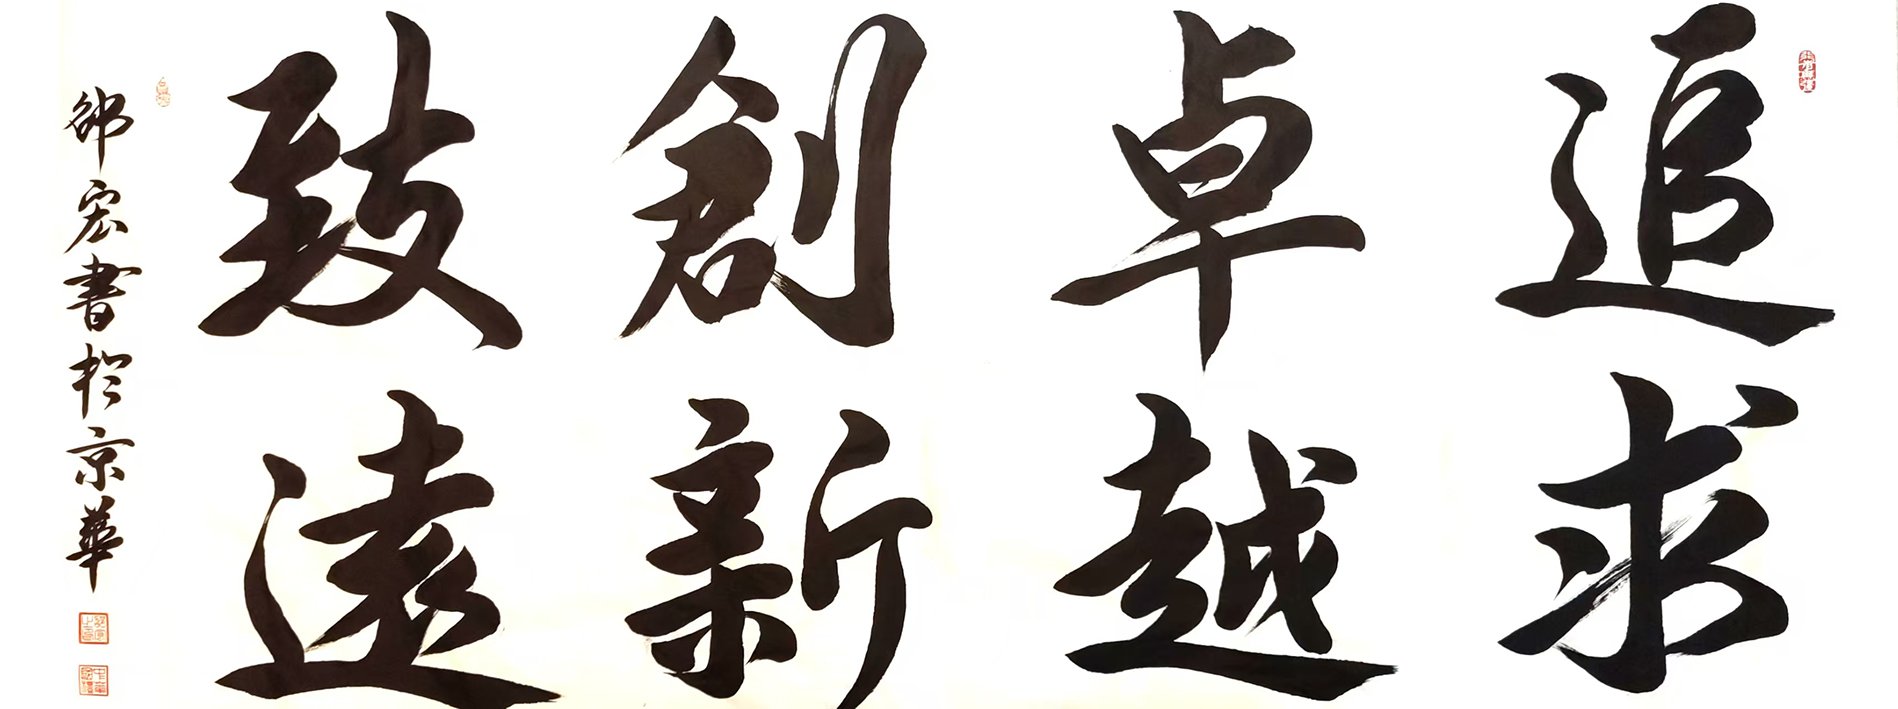 追求
卓越
創新
致遠
邵宏書於京華